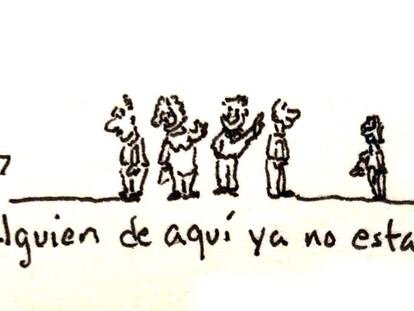 alguien de aquí ya no esta